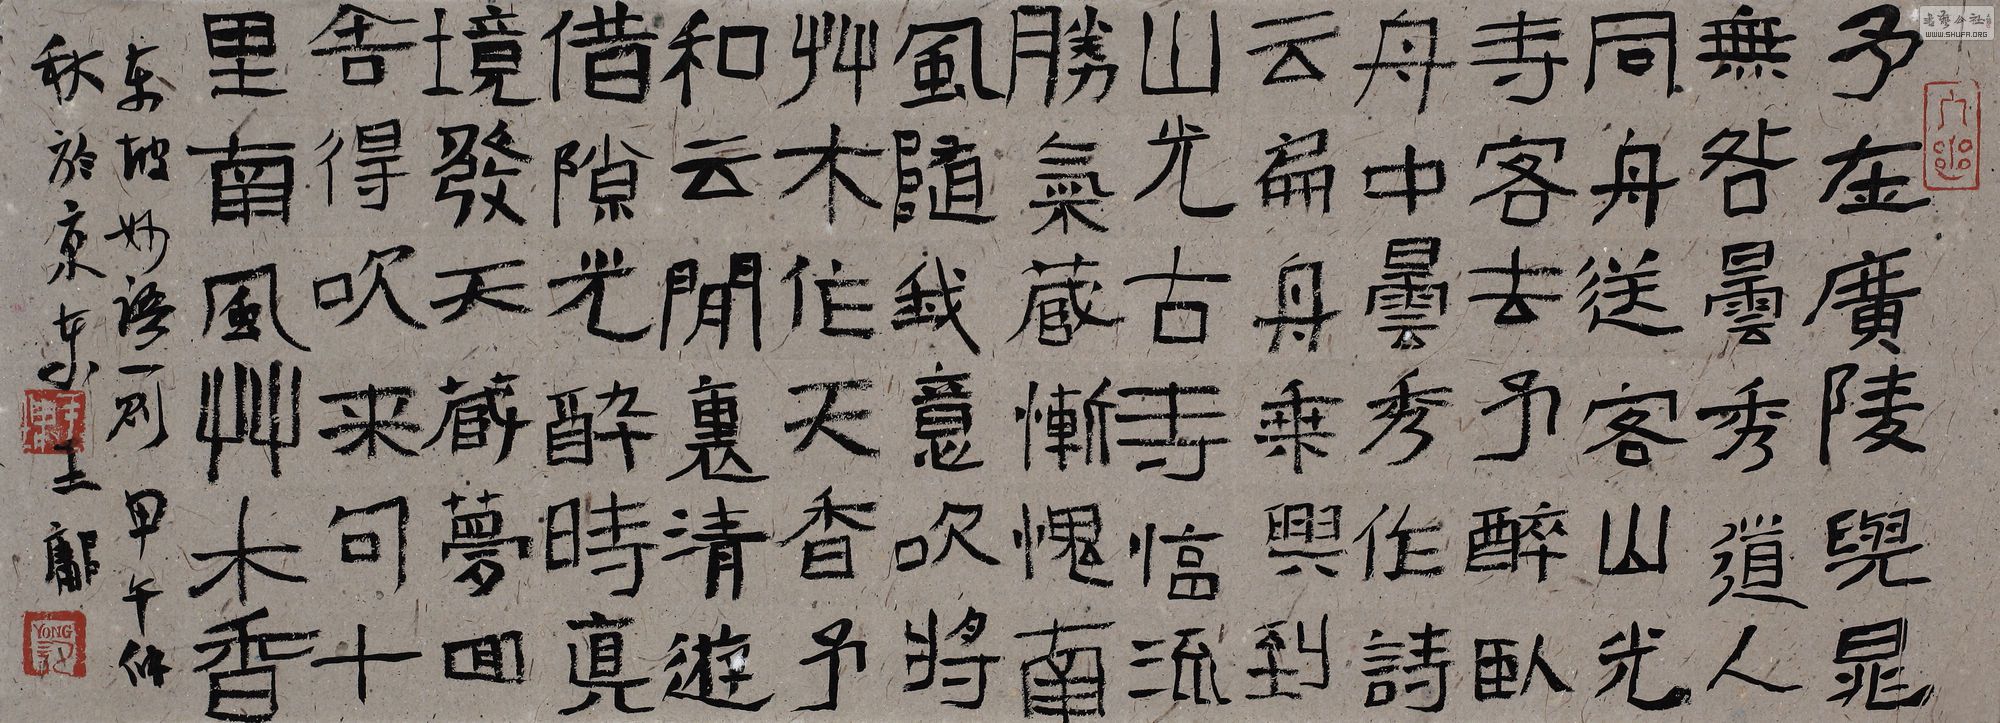 予在廣陵與晁
無咎曇秀道人
同舟送客山光
寺客去予醉臥
舟中曇秀作詩
云扁舟乗興到
山光古寺临流
勝氣蔵慚愧南
風隨我意吹將
艸木作天香予
和云閒裏清遊
借隙光醉時真
境發天蔵夢回
舍得吹来句十
里南風艸木香
东坡妙語一则 甲午仲
秋於京东王鏞
YONG
WWW.SHUFA.ORG